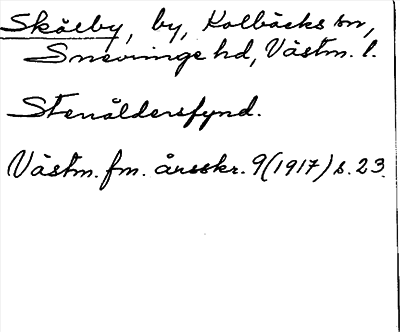 Skölby, by, Kolbäcks sn,
Snevringe hd, Västm. l.
Stenåldersfynd.
Västm. fm. årsskr. 9 (1917) s. 23.